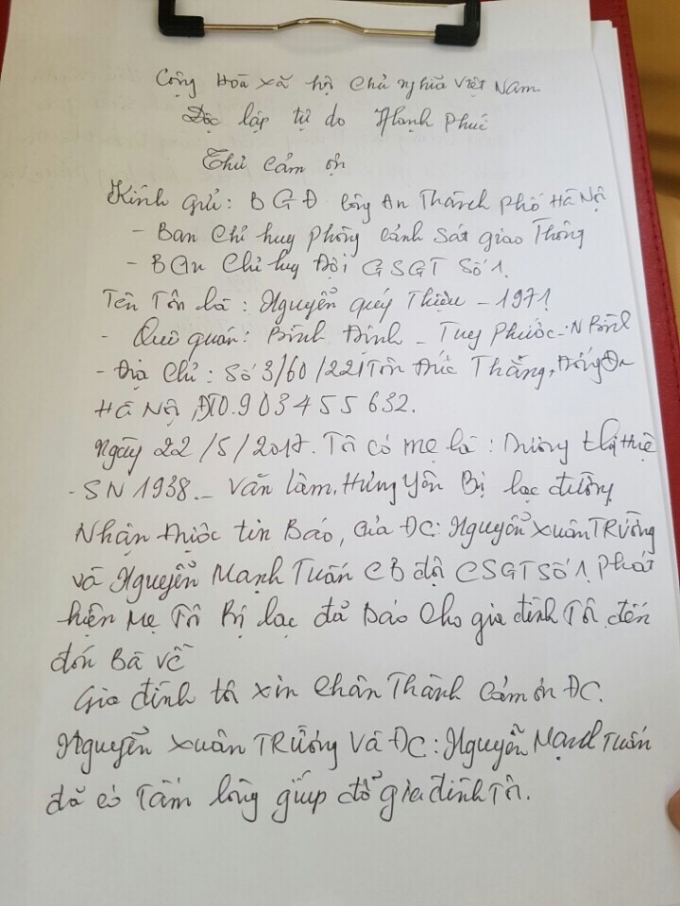 Cộng Hoà xã hội Chủ nghĩa Việt Nam
Độc lập tự do Hạnh Phúc
Thư cảm ơn
Kính gửi: BGĐ Công An Thành phố Hà Nội
- Ban Chỉ huy phòng cảnh sát giao Thông
- BAn Chỉ huy Đội CSGT Số 1.
Tên Tôi là: Nguyễn quý Thiệu - 1971
- Quê quán: Bình Định - Tuy Phước - N Bình
- Địa Chỉ: Số 3/60/221 Tôn Đức Thắng, Đống Đa
Hà Nội, ĐT0.903455632.
Ngày 22/5/2017. Tôi có mẹ là: Dương thị thiệ
- SN 1938. - Văn Lâm, Hưng Yên Bị lạc đường
Nhận được tin Báo, của ĐC: Nguyễn Xuân TRường
và Nguyễn Mạnh Tuấn CB đội CSGT Số 1 phát
hiện Mẹ Tôi Bị lạc đã Báo Cho gia đình Tôi đến
đón Bà về
Gia đình tôi xin Chân Thành Cảm ơn ĐC.
Nguyễn Xuân TRường Và ĐC: Nguyễn Mạnh Tuấn
đã có Tấm lòng giúp đỡ gia đình Tôi.